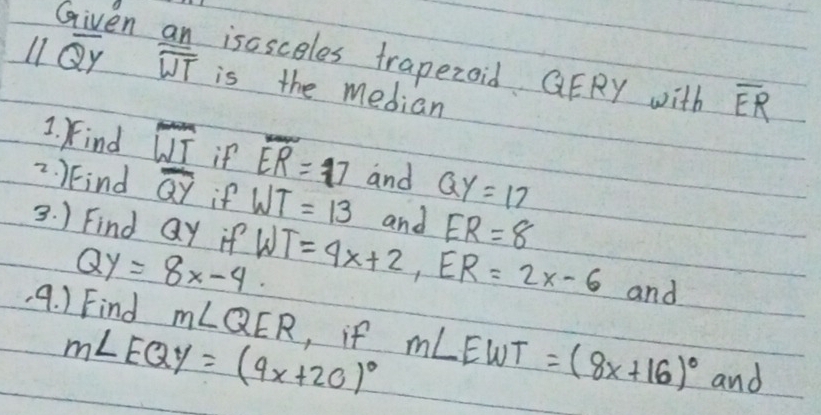 Given an isosceles trapezoid. QERY with ER
// QY WT is the median
1.) Find WT if ER = 17 and QY = 17
2.) Find QY if WT = 13 and ER = 8
3.) Find QY if WT = 4x+2, ER = 2x-6 and
QY = 8x-4.
4.) Find m∠QER, if m∠EWT = (8x+16)° and
m∠EQY = (4x+20)°